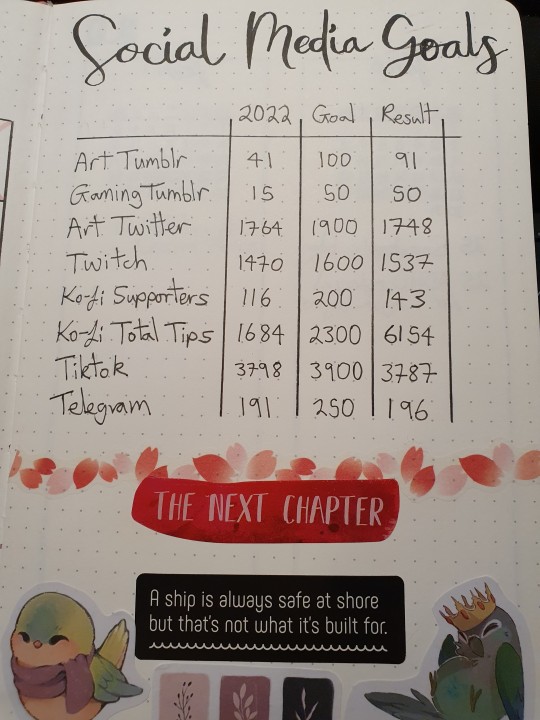 Social Media Goals
2022 Goal Result
Art Tumblr 41 100 91
Gaming Tumblr 15 50 50
Art Twitter 1764 1900 1748
Twitch 1470 1600 1537
Ko-fi Supporters 116 200 143
Ko-fi Total Tips 1684 2300 6154
Tiktok 3798 3900 3787
Telegram 191 250 196
THE NEXT CHAPTER
A ship is always safe at shore
but that's not what it's built for.